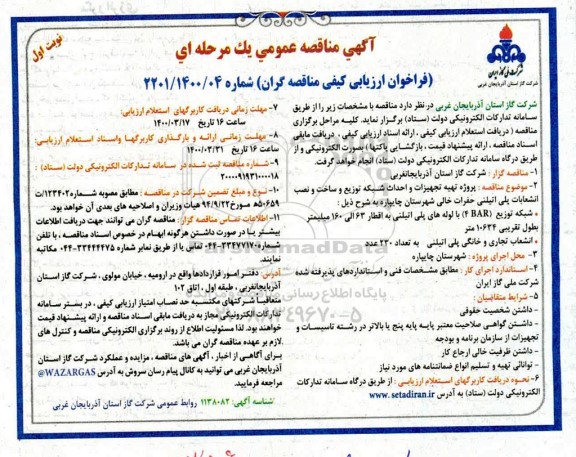 نوبت اول
آگهي مناقصه عمومي يك مرحله اي
(فراخوان ارزیابی کیفی مناقصه گران) شماره ۲۲۰۱/۱۴۰۰/۰۴
شرکت ملی گاز ایران
شرکت گاز استان آذربایجان غربی
شرکت گاز استان آذربایجان غربی در نظر دارد مناقصه با مشخصات زیر را از طریق
سامانه تدارکات الکترونیکی دولت (ستاد) برگزار نماید. کلیه مراحل برگزاری
مناقصه (دریافت استعلام ارزیابی کیفی ، ارائه اسناد ارزیابی کیفی ، دریافت مابقی
اسناد مناقصه ، ارائه پیشنهاد قیمت ، بازگشایی پاکتها) بصورت الکترونیکی و از
طریق درگاه سامانه تدارکات الکترونیکی دولت (ستاد) انجام خواهد گرفت.
۱- مناقصه گزار : شرکت گاز استان آذربایجانغربی
۲- موضوع مناقصه : پروژه تهیه تجهیزات و احداث شبکه توزیع و ساخت و نصب
انشعابات پلی اتیلنی حفرات خالی شهرستان چایپاره به شرح ذیل :
شبکه توزیع (۴ BAR) با لوله های پلی اتیلنی به اقطار ۶۳ الی ۱۶۰ میلیمتر
بطول تقریبی ۱۰۶۳۴ متر
انشعاب تجاری و خانگی پلی اتیلنی به تعداد ۲۳۰ عدد
۳- محل اجرای پروژه : شهرستان چایپاره
۴- استاندارد اجرای کار : مطابق مشخصات فنی و استانداردهای پذیرفته شده
شرکت ملی گاز ایران
۵- شرایط متقاضیان :
- داشتن شخصیت حقوقی
- داشتن گواهی صلاحیت معتبر پایه پنج یا بالاتر در رشته تاسیسات و
تجهیزات از سازمان برنامه و بودجه
- داشتن ظرفیت خالی ارجاع کار
- توانائی تهیه و تسلیم انواع ضمانتنامه های مورد نیاز
۶- نحوه دریافت کاربرگهای استعلام ارزیابی : از طریق درگاه سامانه تدارکات
الکترونیکی دولت (ستاد) به آدرس www.setadiran.ir
۷- مهلت زمانی دریافت کاربرگهای استعلام ارزیابی:
ساعت ۱۶ تاریخ ۱۴۰۰/۰۳/۱۷
۸- مهلت زمانی ارائه و بارگذاری کاربرگها و اسناد استعلام ارزیابی:
ساعت ۱۶ تاریخ ۱۴۰۰/۰۳/۳۱
۹- شماره مناقصه ثبت شده در سامانه تدارکات الکترونیکی دولت (ستاد) :
۲۰۰۰۰۹۱۹۳۱۰۰۰۰۱۸
۱۰- نوع و مبلغ تضمین شرکت در مناقصه : مطابق مصوبه شماره ۱۲۳۴۰۲/ت
۵۰۶۵۹ه مورخ ۹۴/۹/۲۲ هیات وزیران و اصلاحیه های بعدی آن خواهد بود.
۱۱- اطلاعات تماس مناقصه گزار: مناقصه گران می توانند جهت دریافت اطلاعات
بیشتر یا در صورت داشتن هرگونه ابهام در خصوص اسناد مناقصه ، با تلفن
شماره ۳۳۴۷۷۱۷۰-۰۴۴ تماس یا از طریق نمابر شماره ۳۳۴۴۴۴۷۵-۰۴۴ مکاتبه
نمایند.
آدرس: دفتر امور قراردادها واقع در ارومیه ، خیابان مولوی ، شرکت گاز استان
آذربایجانغربی ، طبقه اول ، اتاق ۱۰۲
متعاقبا شرکتهای مکتسبه حد نصاب امتیاز ارزیابی کیفی ، در بستر سامانه
تدارکات الکترونیکی مجاز به دریافت مابقی اسناد مناقصه و ارائه پیشنهاد قیمت
خواهند بود. لذا مسئولیت اطلاع از روند برگزاری الکترونیکی مناقصه و کنترل های
لازم بر عهده مناقصه گران می باشد.
برای آگاهی از اخبار ، آگهی های مناقصه ، مزایده و عملکرد شرکت گاز استان
آذربایجان غربی می توانید به کانال پیام رسان سروش به آدرس WAZARGAS@
مراجعه فرمایید.
شناسه آگهی: ۱۱۳۸۰۸۲ روابط عمومی شرکت گاز استان آذربایجان غربی